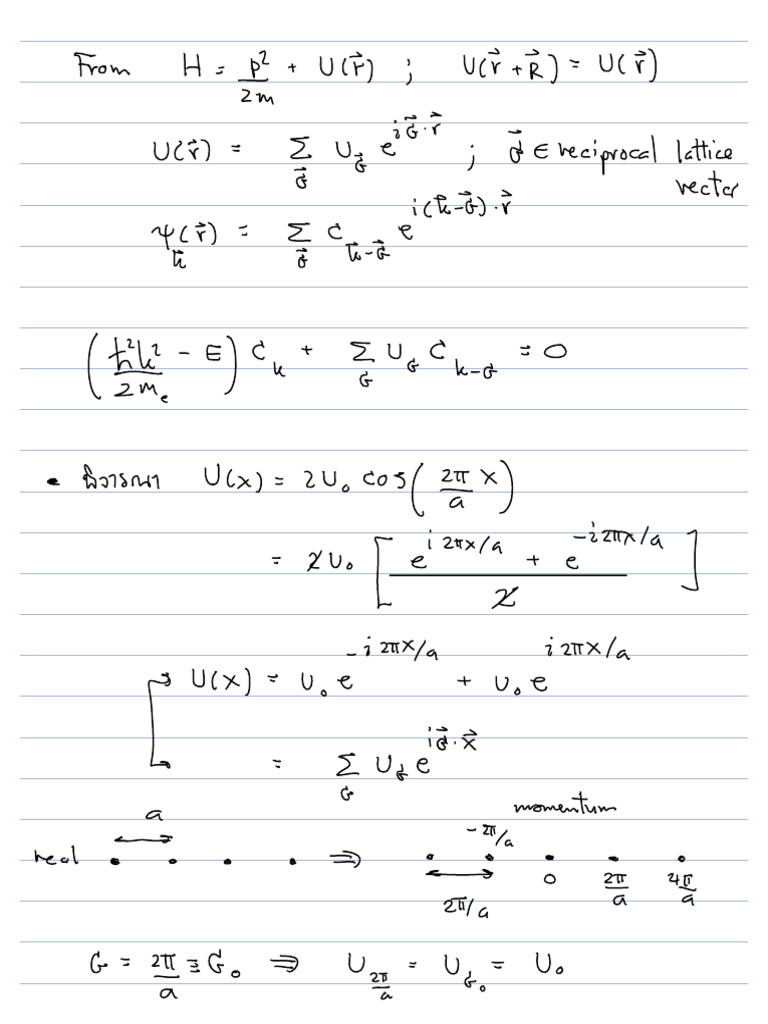 From H = p²/2m + U(r⃗) ; U(r⃗ + R⃗) = U(r⃗)
U(r⃗) = Σ_G⃗ U_G⃗ e^{iG⃗·r⃗} ; G⃗ ∈ reciprocal lattice
vector
ψ_k⃗(r⃗) = Σ_G⃗ C_{k⃗-G⃗} e^{i(k⃗-G⃗)·r⃗}
(ħ²k²/2mₑ - E) C_k + Σ_G U_G C_{k-G} = 0
• พิจารณา U(x) = 2U₀ cos(2π/a x)
= 2U₀ [(e^{i2πx/a} + e^{-i2πx/a})/2]
U(x) = U₀ e^{-i2πx/a} + U₀ e^{i2πx/a}
= Σ_G U_G e^{iG⃗·x⃗}
a momentum
-2π/a
real ⇒
0 2π/a 4π/a
2π/a
G = 2π/a ≡ G₀ ⇒ U_{2π/a} = U_{G₀} = U₀